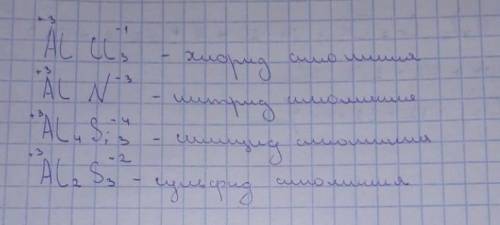 +3 Al Cl₃ -1 – хлорид алюминия
+3 Al N -3 – нитрид алюминия
+3 Al₄ Si₃ -4 – силицид алюминия
+3 Al₂ S₃ -2 – сульфид алюминия